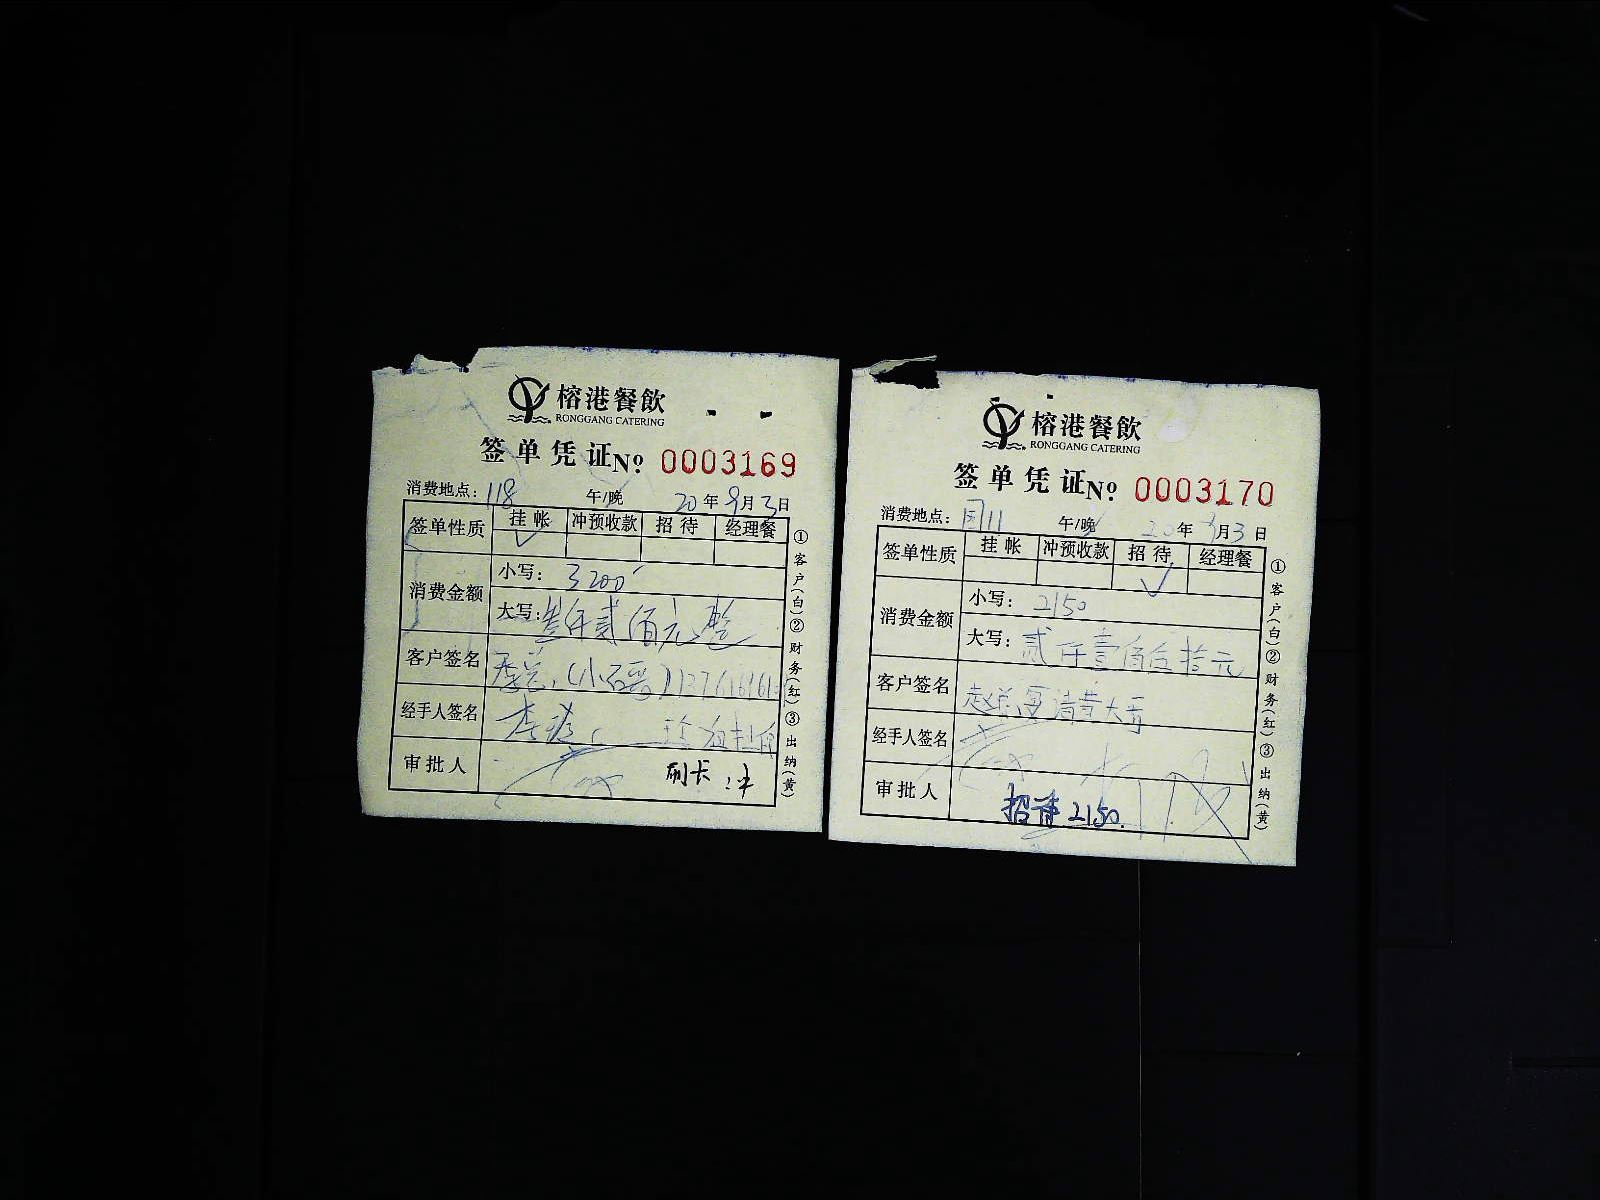 榕港餐飲
RONGGANG CATERING
签单凭证 No 0003169
消费地点: 118 午/晚 20年9月3日
签单性质 挂帐 冲预收款 招待 经理餐
✓
消费金额 小写: 3200
大写: 叁仟贰佰元整
客户签名
经手人签名
审批人 刷卡
①客户(白)②财务(红)③出纳(黄)
榕港餐飲
RONGGANG CATERING
签单凭证 No 0003170
消费地点: 午/晚 20年9月3日
签单性质 挂帐 冲预收款 招待 经理餐
✓
消费金额 小写: 2150
大写: 贰仟壹佰伍拾元
客户签名
经手人签名
审批人 招待 2150.
①客户(白)②财务(红)③出纳(黄)